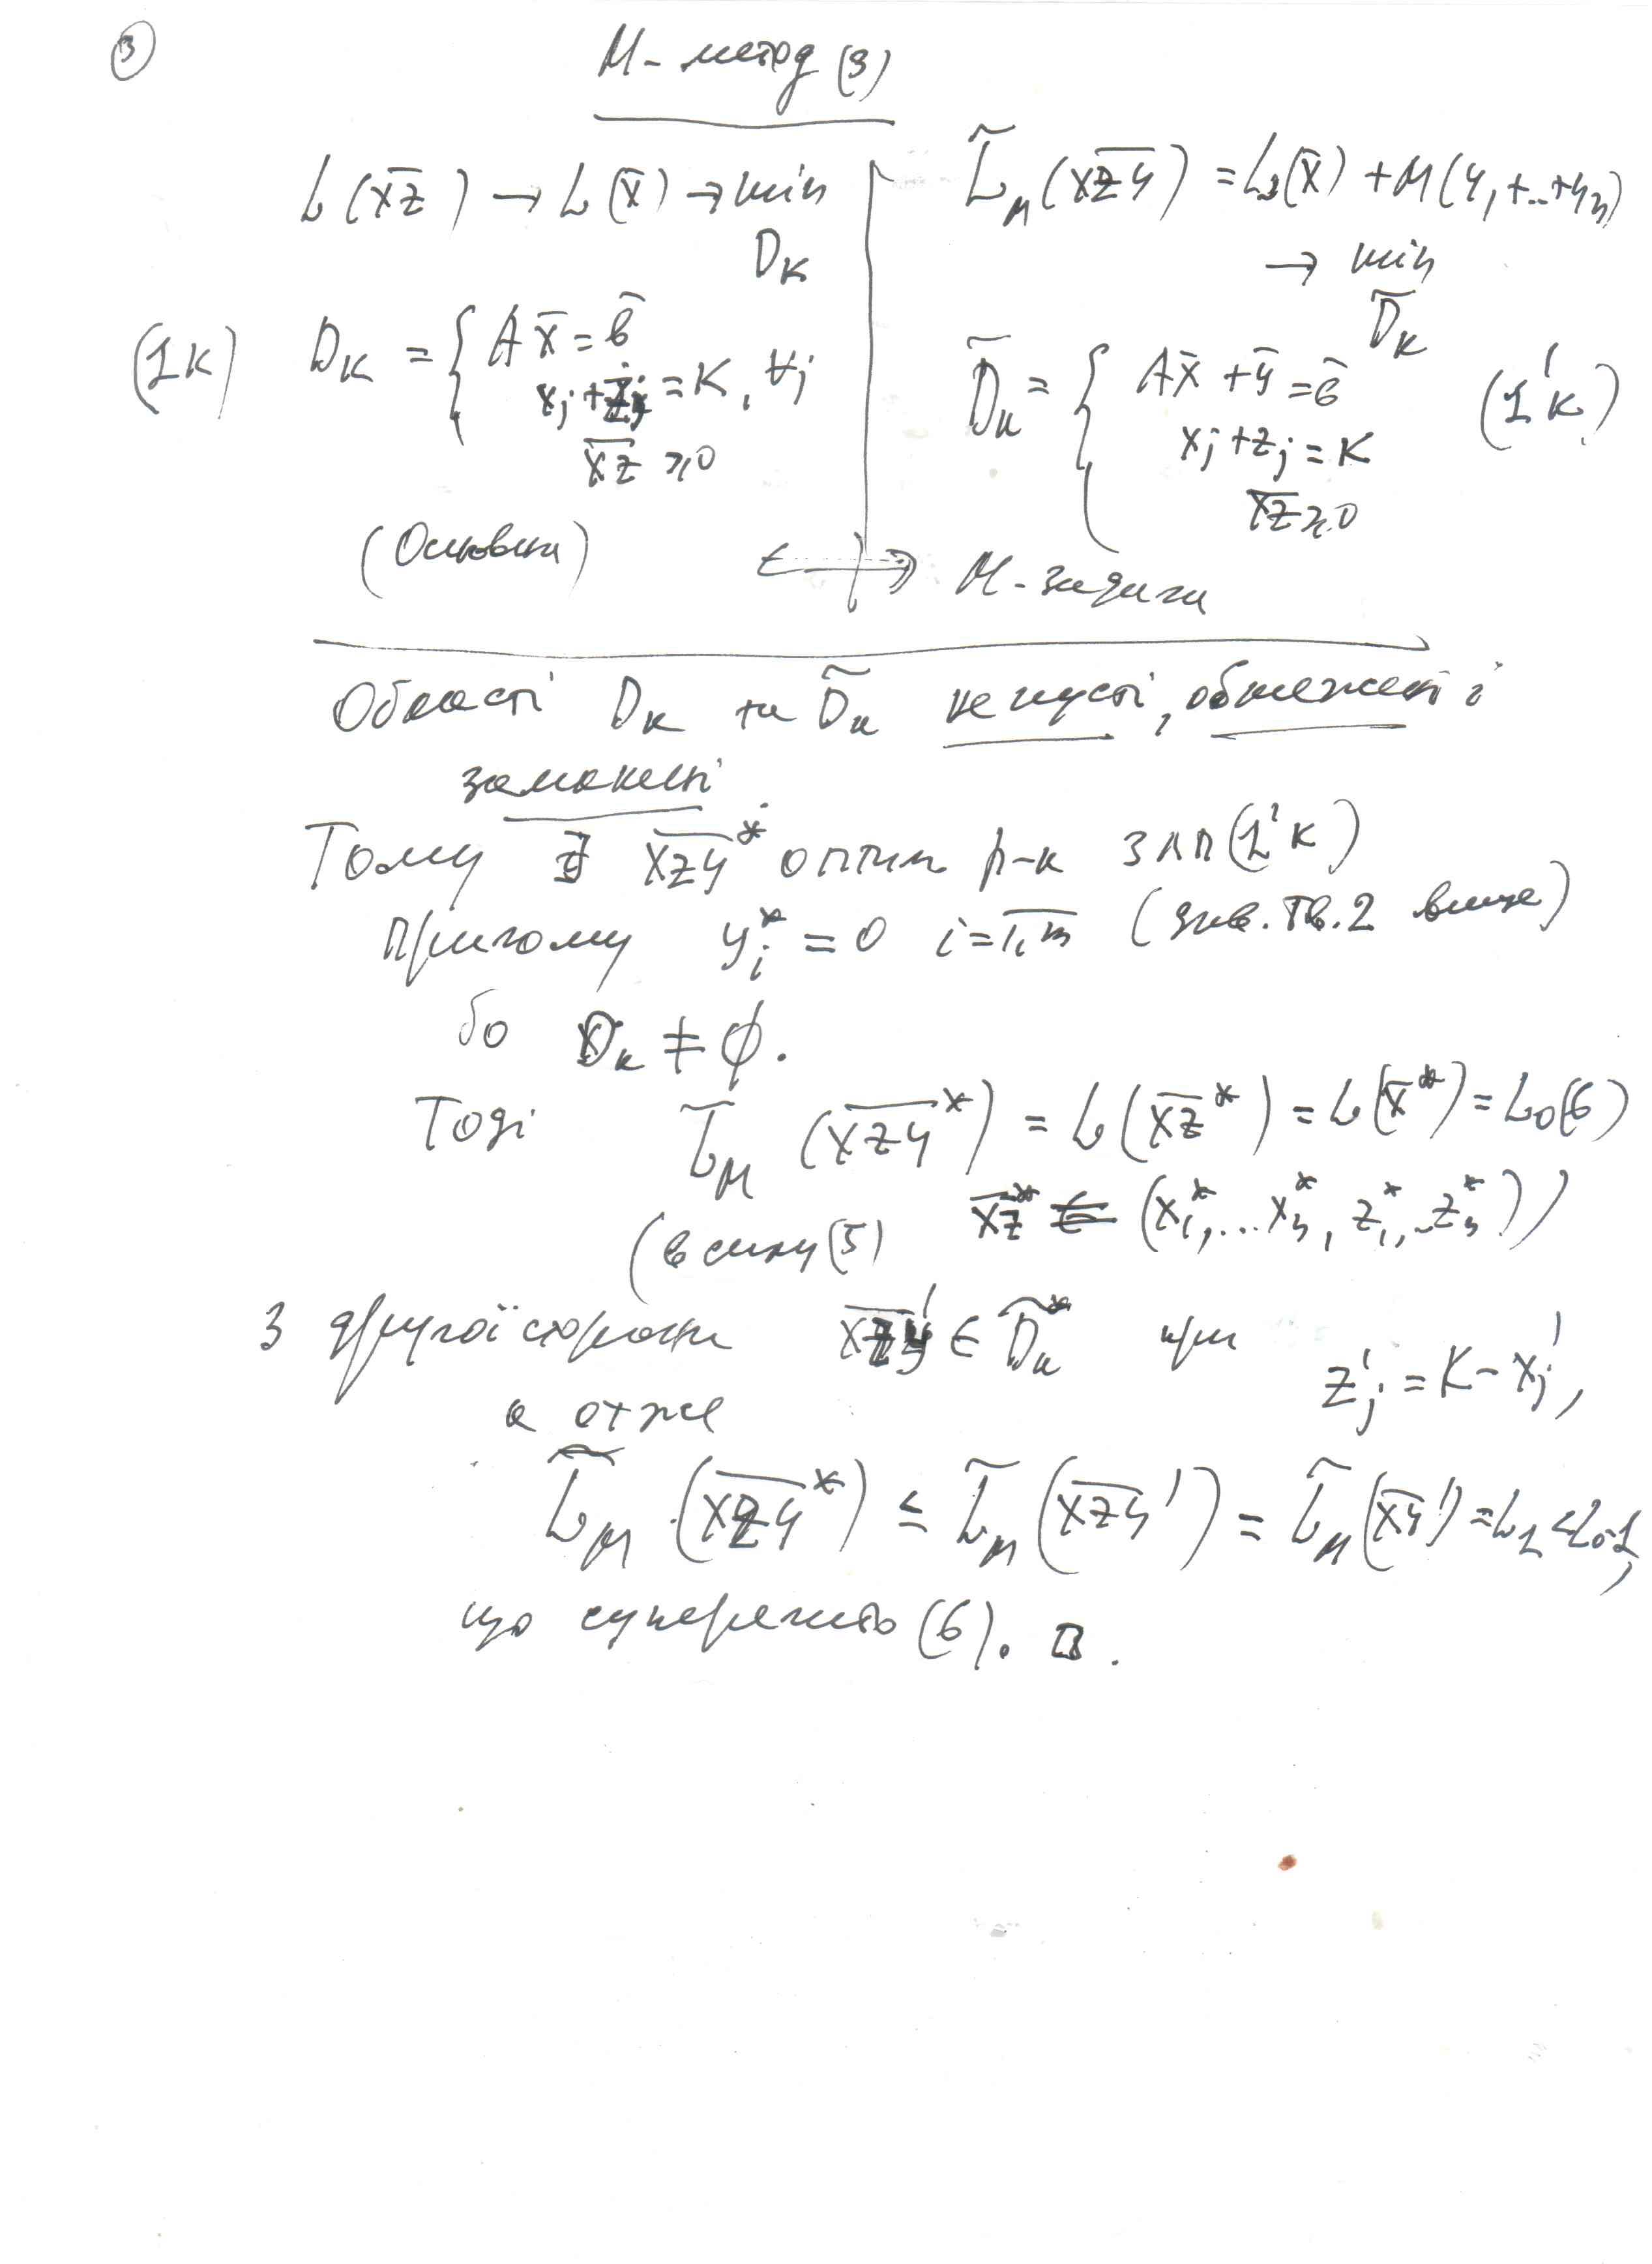 3
М-метод (3)
L(x̅z̅) → L(x̄) → min
D_K
(1K) D_K = { Ax̄ = b̄
x_j + z_j = K, ∀j
x̅z̅ ≥ 0
(Основна)
L̃_M(x̅z̅y̅) = L(x̄) + M(y_1 + .. + y_m)
→ min
D̃_K
D̃_K = { Ax̄ + ȳ = b̄ (1'K)
x_j + z_j = K
x̅z̅ ≥ 0
←→ М-задача
Області D_K та D̃_K не пусті, обмежені і
замкнені
Тому ∃ x̅z̅y̅* оптим р-к ЗЛП (1'K)
Причому y_i* = 0 i = 1,m (див. Тв. 2 вище)
бо D_K ≠ ∅.
Тоді L̃_M (x̅z̅y̅*) = L(x̅z̅*) = L(x̄*) = L_0 (6)
(в силу (5) x̅z̅* = (x_1*, ... x_n*, z_1*, .. z_n*))
З другої сторони x̅z̅y̅' ∈ D̃_K* при z_j' = K - x_j',
а отже
L̃_M (x̅z̅y̅*) ≤ L̃_M (x̅z̅y̅') = L̃_M (x̅y̅') = L_1 < L_0-1,
що суперечить (6). □.